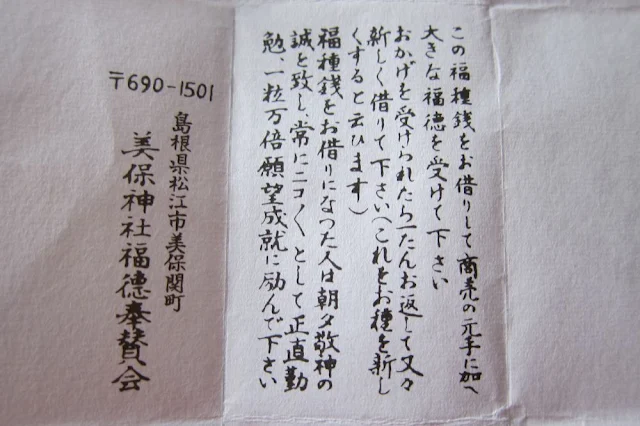 この福種銭をお借りして商売の元手に加へ
大きな福徳を受けて下さい
おかげを受けられたら一たんお返しして又々
新しく借りて下さい(これをお種を新し
くすると云ひます)
福種銭をお借りになつた人は朝夕敬神の
誠を致し、常にニコ〳〵として正直勤
勉、一粒万倍願望成就に励んで下さい
〒690-1501
島根県松江市美保関町
美保神社福徳奉賛会